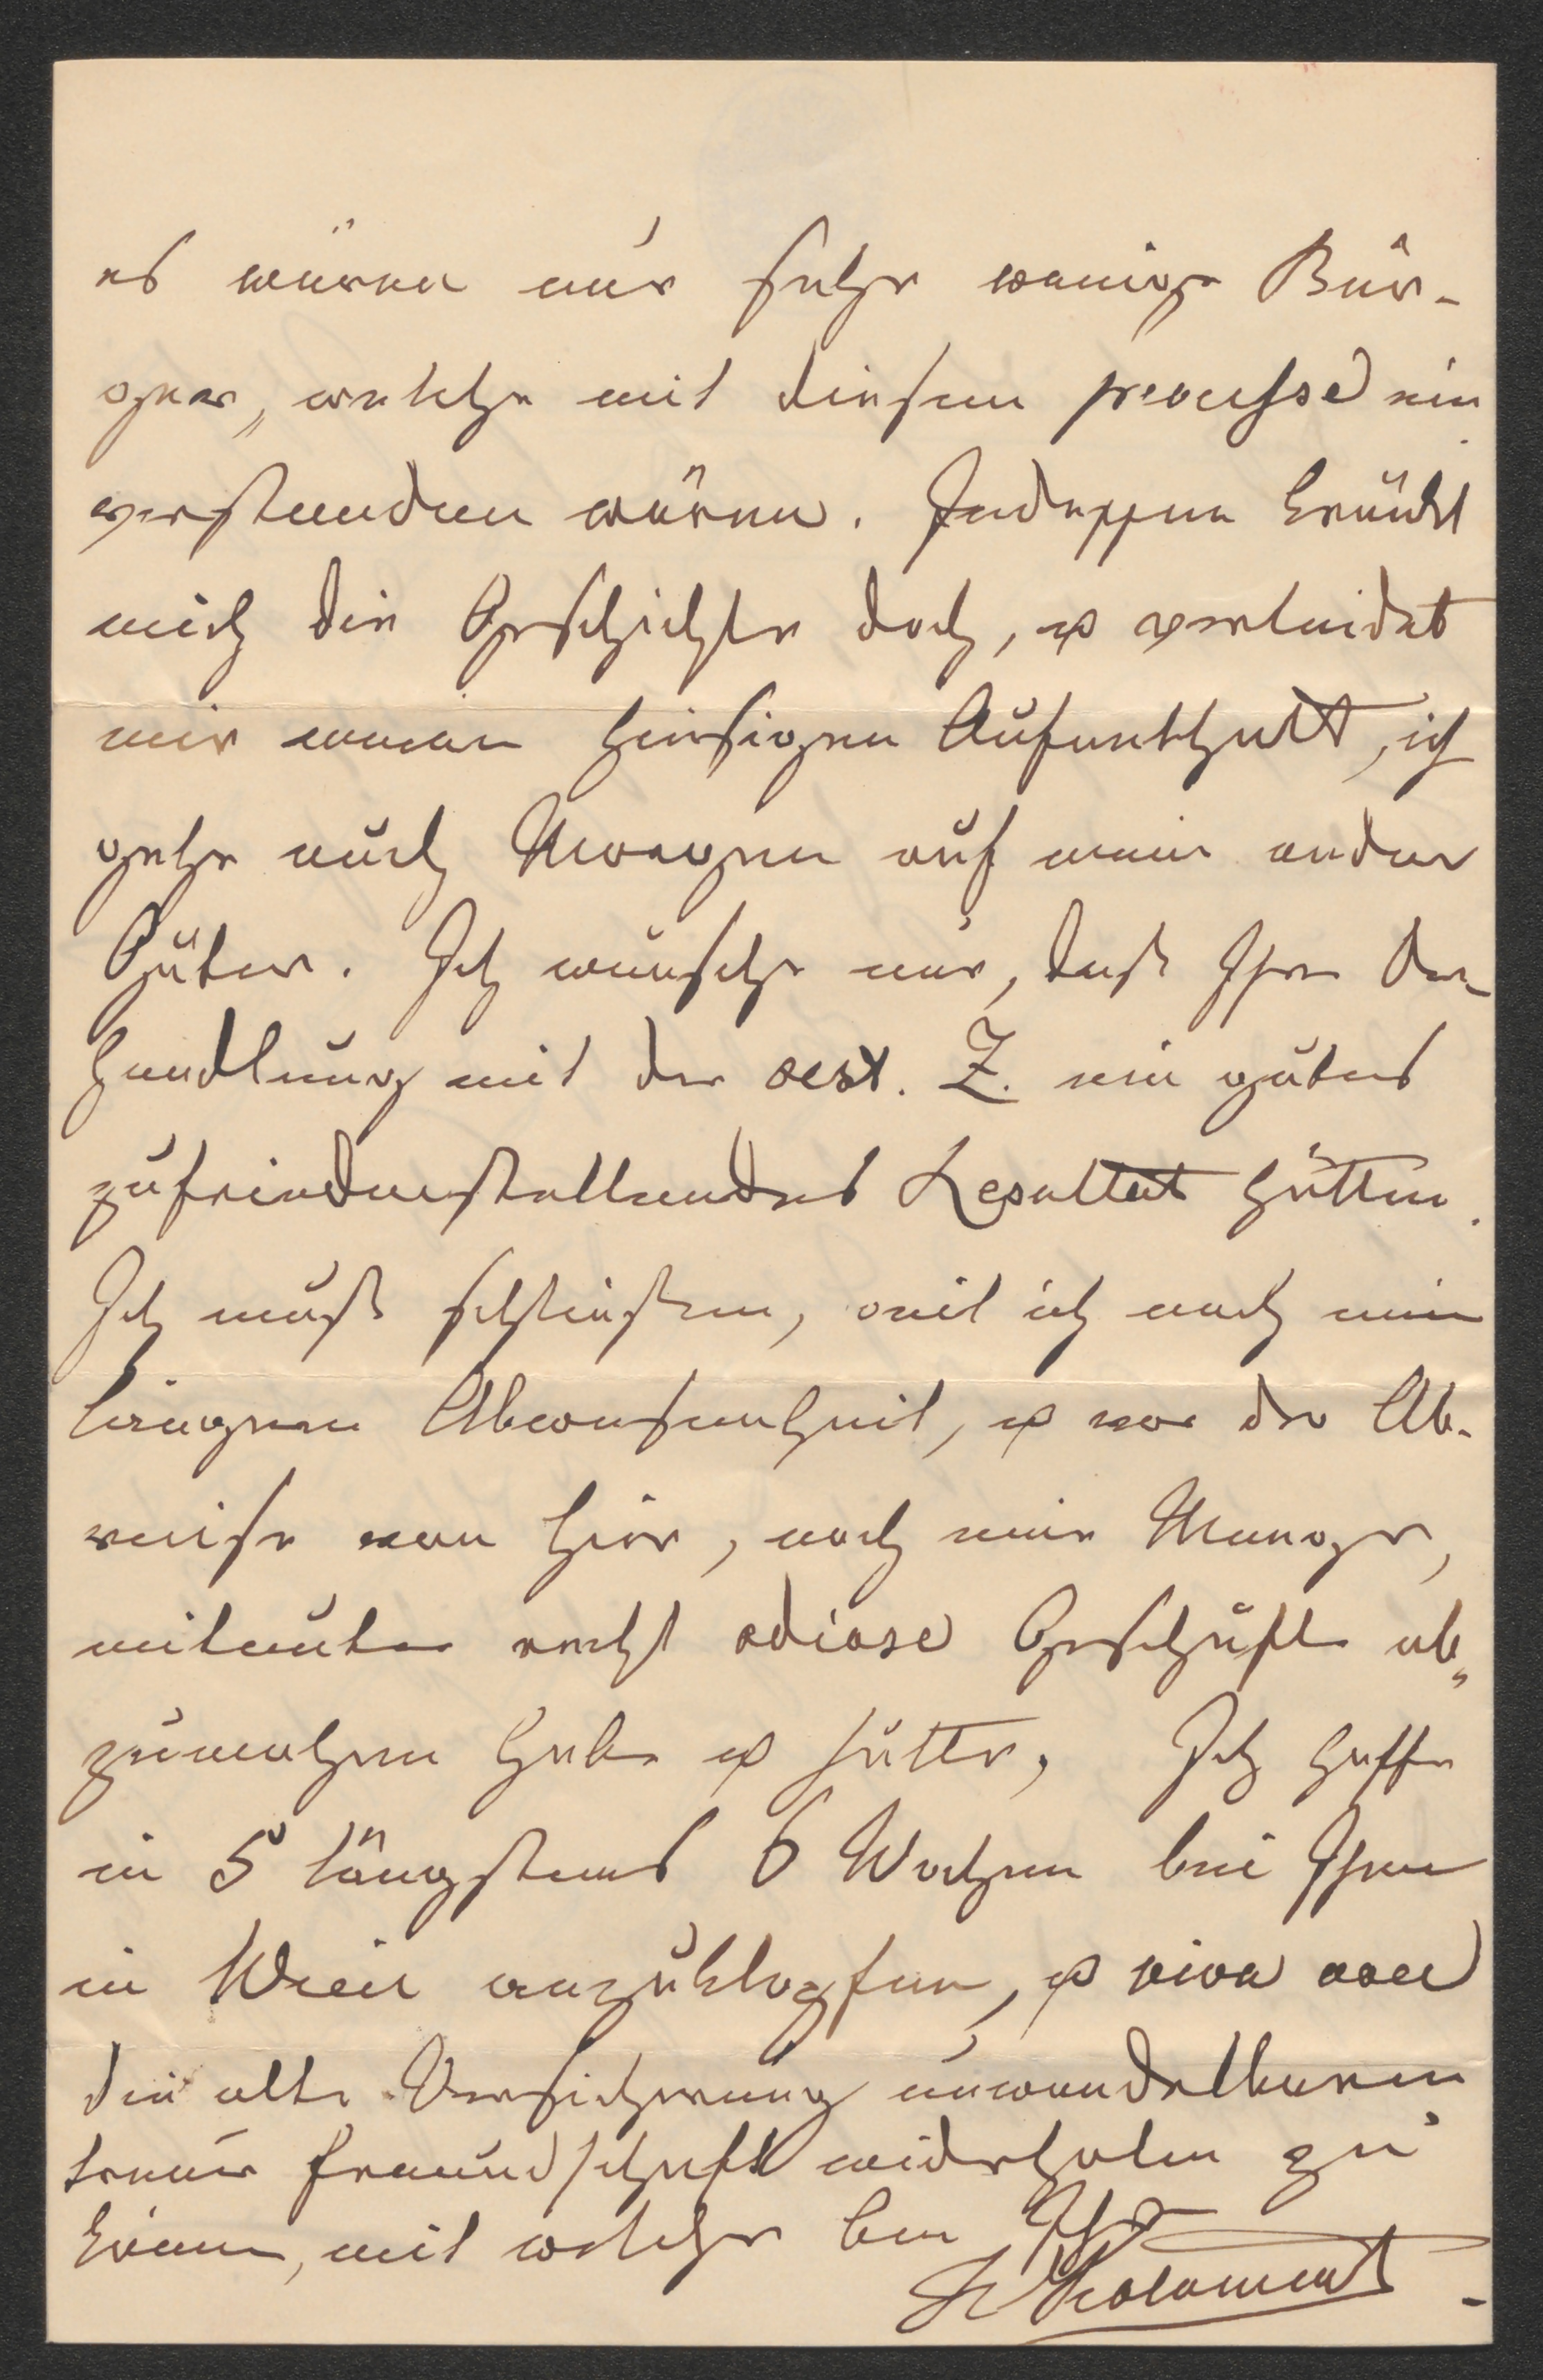 es wären nur sehr wenige Bür-
ger, welche mit diesem processe ein
verstanden wären. Indessen kränkt
mich die Geschichte doch, & verleidet
mir meinen hiesigen Aufenthalt, ich
gehe auch Morgen auf meine andern
Güter. Ich wünsche nur, daß Ihre Ver-
handlung mit der oest. Z. ein gutes
zufriedenstellendes Resultat hätten.
Ich muß schließen, weil ich nach meine
längeren Abwesenheit, & vor der Ab-
reise von hier, noch eine Menge,
mitunter recht odiose Geschäfte ab„
zumachen habe & hätte, Ich hoffe
in 5 längstens 6 Wochen bei Ihnen
in Wien anzuklopfen, & viva voce
die alte Versicherung unwandelbaren
treuer Freundschaft widerholen zu
können, mit welcher bin Ihr